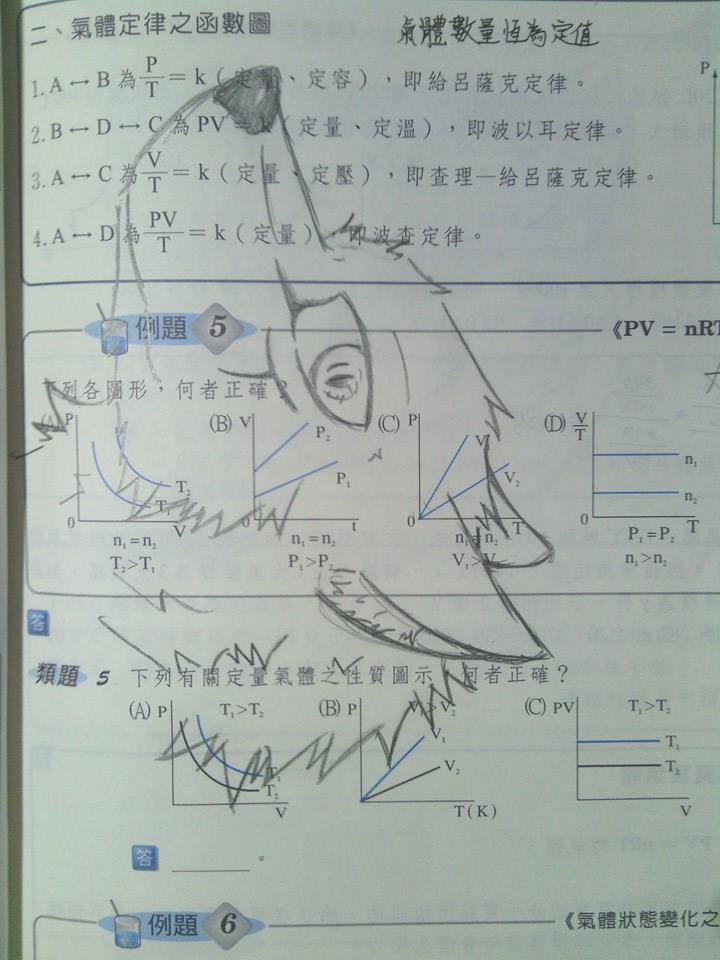 二、氣體定律之函數圖
氣體數量恆為定值
1. A ↔ B 為 P/T = k（定量、定容），即給呂薩克定律。
2. B ↔ D ↔ C 為 PV = k（定量、定溫），即波以耳定律。
3. A ↔ C 為 V/T = k（定量、定壓），即查理—給呂薩克定律。
4. A ↔ D 為 PV/T = k（定量），即波查定律。
P
例題 5
《PV = nRT
下列各圖形，何者正確？
(A) P T₂ T₁ 0 V
n₁ = n₂
T₂ > T₁
(B) V P₂ P₁ 0 t
n₁ = n₂
P₁ > P₂
(C) P V₁ V₂ 0 T
n₁ = n₂
V₁ > V₂
(D) V/T n₁ n₂ 0 T
P₁ = P₂
n₁ > n₂
答
類題 5 下列有關定量氣體之性質圖示，何者正確？
(A) P T₁ > T₂ T₁ T₂ V
(B) P V₁ > V₂ V₁ V₂ T ( K )
(C) PV T₁ > T₂ T₁ T₂ V
答 。
例題 6
《氣體狀態變化之